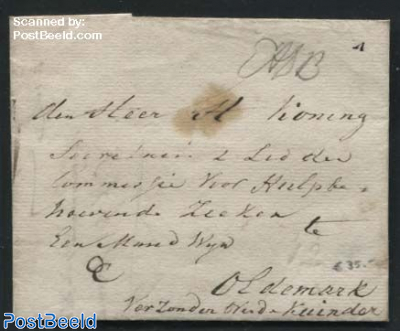 Scanned by
PostBeeld.com
den Heer H Koning
Secretaris & Lid der
Commissie voor Hulpbe
hoevende Zieken
te
Een Mand Wyn
Oldemark
Verzonden Kuinder
€ 35.-
Owned by
PostBeeld.com